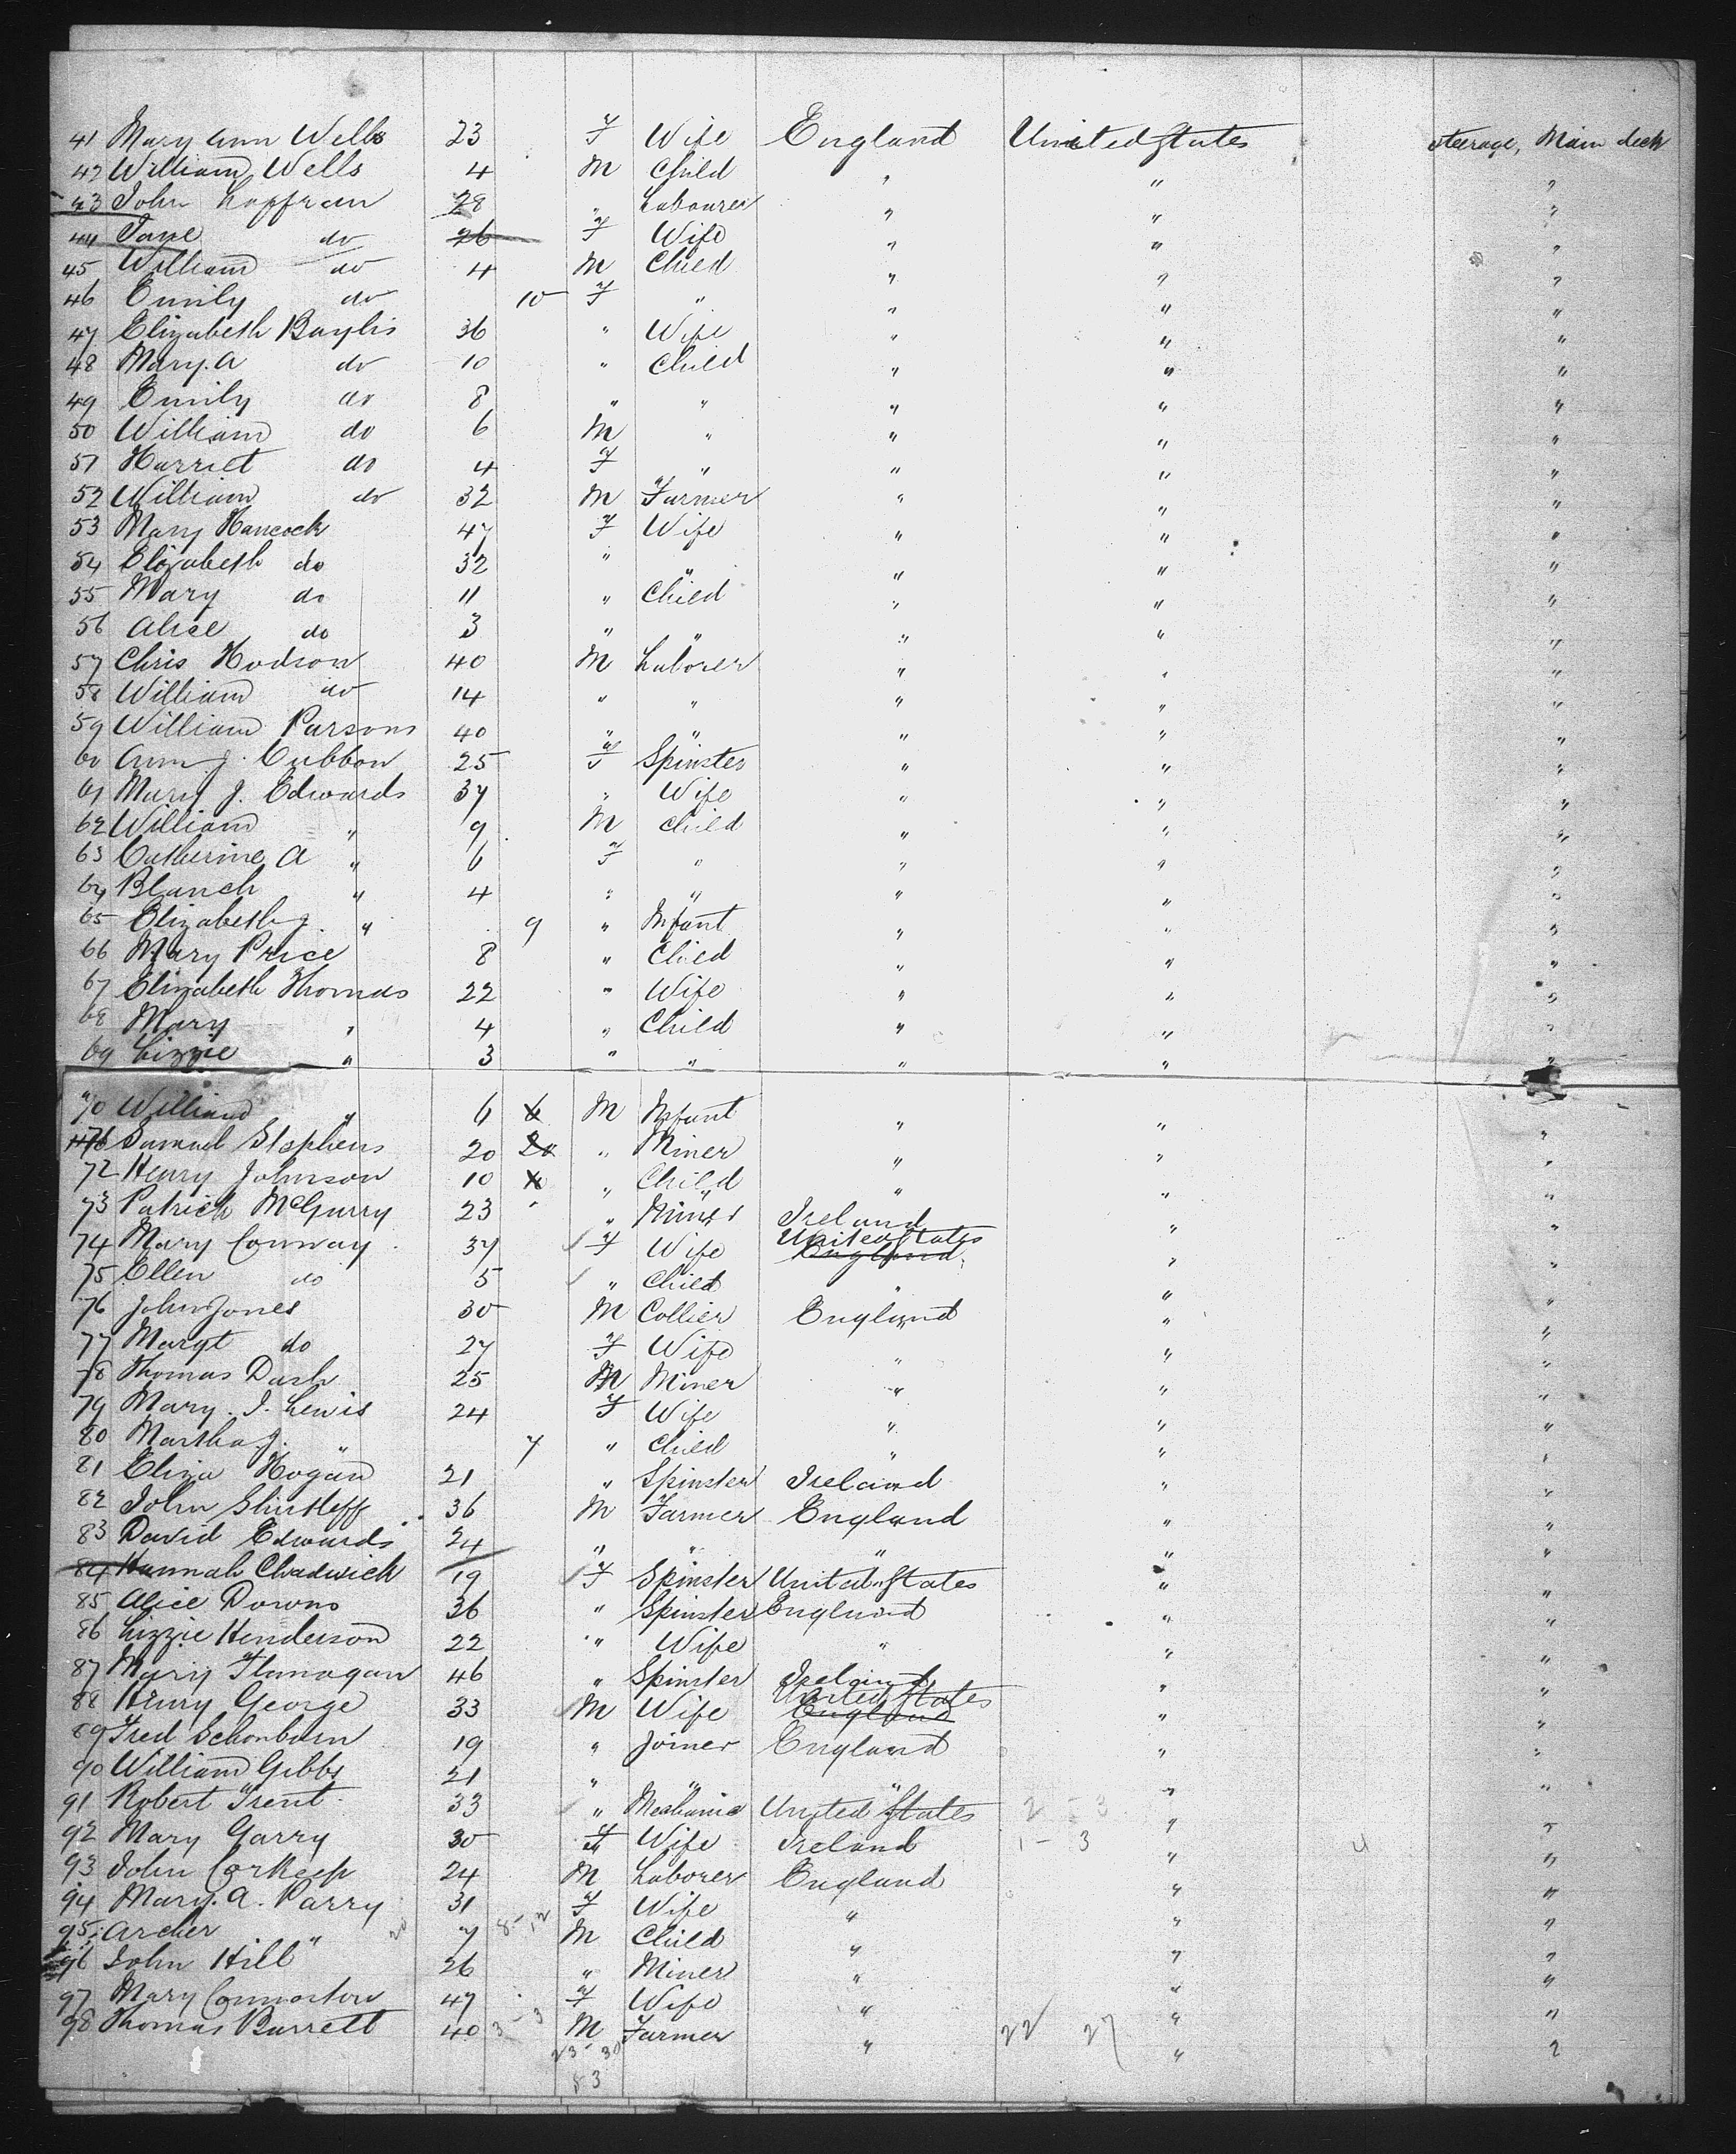 41 Mary Ann Wells 23 F Wife England United States Steerage, Main deck
42 William Wells 4 M Child " " "
43 John 28 " Labourer " " "
44 Jane do 26 F Wife " " "
45 William do 4 M Child " " "
46 Emily do 10 F " " " "
47 Elizabeth Baylis 36 " Wife " " "
48 Mary. A do 10 " Child " " "
49 Emily do 8 " " " " "
50 William do 6 M " " " "
51 Harriet do 4 F " " " "
52 William do 32 M Farmer " " "
53 Mary Hancock 47 F Wife " " "
54 Elizabeth do 32 " " " " "
55 Mary do 11 " Child " " "
56 Alice do 3 " " " " "
57 Chris Hodson 40 M Laborer " " "
58 William do 14 " " " " "
59 William Parsons 40 " " " " "
60 Ann J. Cubbon 25 F Spinster " " "
61 Mary J. Edwards 37 " Wife " " "
62 William " 9 M Child " " "
63 Catherine A " 6 F " " " "
64 Blanch " 4 " " " " "
65 Elizabeth J. " 9 " Infant " " "
66 Mary Price 8 " Child " " "
67 Elizabeth Thomas 22 " Wife " " "
68 Mary " 4 " Child " " "
69 Lizzie " 3 " " " " "
70 William " 6 6 M Infant " " "
71 Samuel Stephens 20 20 " Miner " " "
72 Henry Johnson 10 " Child " " "
73 Patrick McGurry 23 " Miner Ireland " "
74 Mary Conway 37 F Wife United States England " "
75 Ellen do 5 " Child " " "
76 John Jones 30 M Collier England " "
77 Margt do 27 F Wife " " "
78 Thomas Dash 25 M Miner " " "
79 Mary. J. Lewis 24 F Wife " " "
80 Martha J. " 7 " Child " " "
81 Eliza Hogan 21 " Spinster Ireland " "
82 John Shirtleff 36 M Farmer England " "
83 David Edwards 24 " " " " "
84 Hannah Chadwick 19 F Spinster United States " "
85 Alice Downs 36 " Spinster England " "
86 Lizzie Henderson 22 " Wife " " "
87 Mary Flanagan 46 " Spinster Ireland " "
88 Henry George 33 M Wife United States England " "
89 Fred Schonburn 19 " Joiner England " "
90 William Gibbs 21 " " " " "
91 Robert Trent 33 " Mechanic United States 2 - 3 " "
92 Mary Garry 30 F Wife Ireland 1 - 3 " 4 "
93 John Corkeep 24 M Laborer England " "
94 Mary. A. Parry 31 F Wife " " "
95 Archer " 7 M Child " " "
96 John Hill 26 " Miner " " "
97 Mary 47 F Wife " " "
98 Thomas Barrett 40 3 - 3 M Farmer " 22 27 " "
23 - 30
83